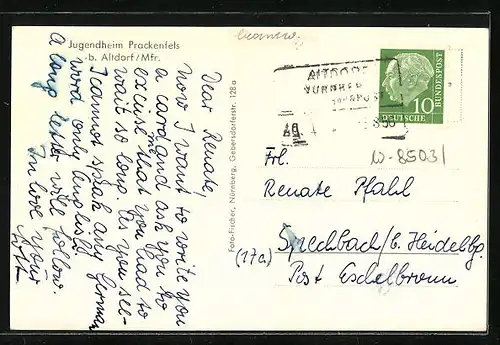 Jugendheim Prackenfels
b. Altdorf/Mfr.
Dear Renate,
Now I want to write you
a card and ask you to
excuse me that you had to
wait so long. As you see-
I cannot speak any German
word only English.
A long letter will follow.
In love your
Foto-Fischer, Nürnberg, Gebersdorferstr. 128 a
ALTDORF
10
DEUTSCHE
BUNDESPOST
W-8503/
Frl.
Renate Pfahl
(17a)
Spechbach/b. Heidelbg.
Post Eschelbronn